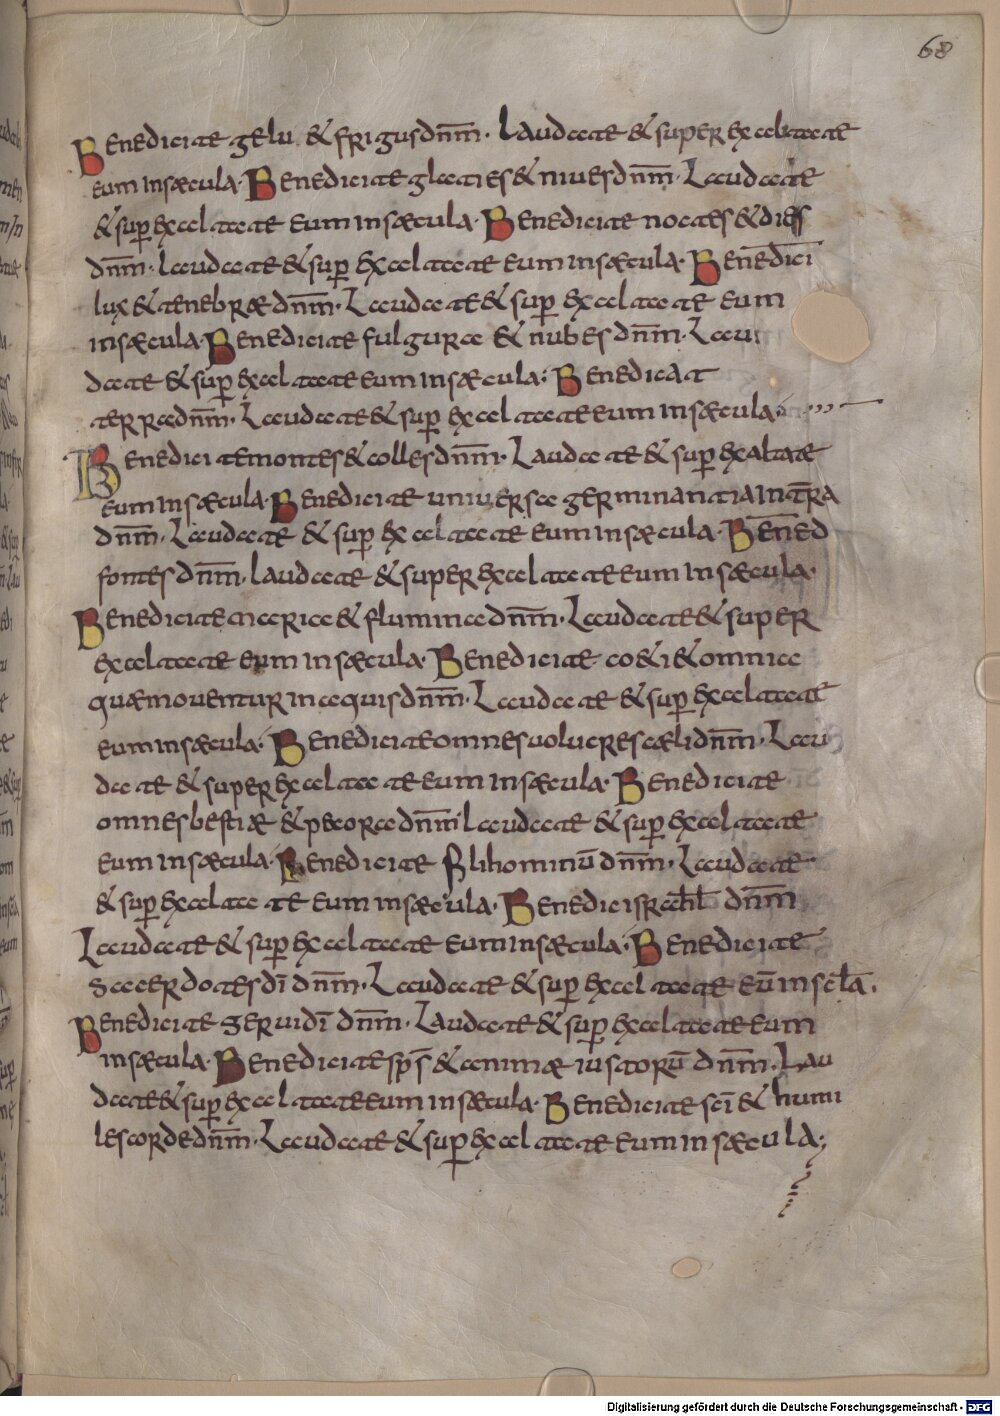 68
Benedicite gelu & frigus dn̄m. Laudate & super exaltate
eum in sæcula. Benedicite glaties & niues dn̄m. Laudate
& sup̱ exaltate eum in sæcula. Benedicite noctes & dies
dn̄m. laudate & sup̱ exaltate eum in sæcula. Benedici
lux & tenebræ dn̄m. Laudate & sup̱ exaltate eum
in sæcula. Benedicite fulgura & nubes dn̄m. Lau
date & sup̱ exaltate eum in sæcula: Benedicat
terra dn̄m. Laudate & sup̱ exaltate eum in sæcula
Benedicite montes & colles dn̄m. Laudate & sup̱ exaltate
eum in sæcula. Benedicite uniuersa germinantia in t̄ra
dn̄m. Laudate & sup̱ exaltate eum in sæcula. Bened
fontes dn̄m. laudate & super exaltate eum in sæcula.
Benedicite maria & flumina dn̄m. Laudate & super
exaltate eum in sæcula. Benedicite co&i & omnia
quæ mouentur in aquis dn̄m. Laudate & sup̱ exaltate
eum in sæcula. Benedicite omnes uolucres cæli dn̄m. Lau
date & super exaltate eum in sæcula. Benedicite
omnes bestiæ & pecora dn̄m laudate & sup̱ exaltate
eum in sæcula. Benedicite filii hominū dn̄m. Laudate
& sup̱ exaltate eum in sæcula. Benedic israhl̄ dn̄m
Laudate & sup̱ exaltate eum in sæcula. Benedicite
sacerdotes dī dn̄m. Laudate & sup̱ exaltate eū in scl̄a.
Benedicite seruidī dn̄m. Laudate & sup̱ exaltate eum
in sæcula. Benedicite sp̄s & animæ iustorū dn̄m. Lau
date & sup̱ exaltate eum in sæcula. Benedicite scī & humi
les corde dn̄m. Laudate & sup̱ exaltate eum in sæcula;
Digitalisierung gefördert durch die Deutsche Forschungsgemeinschaft - DFG